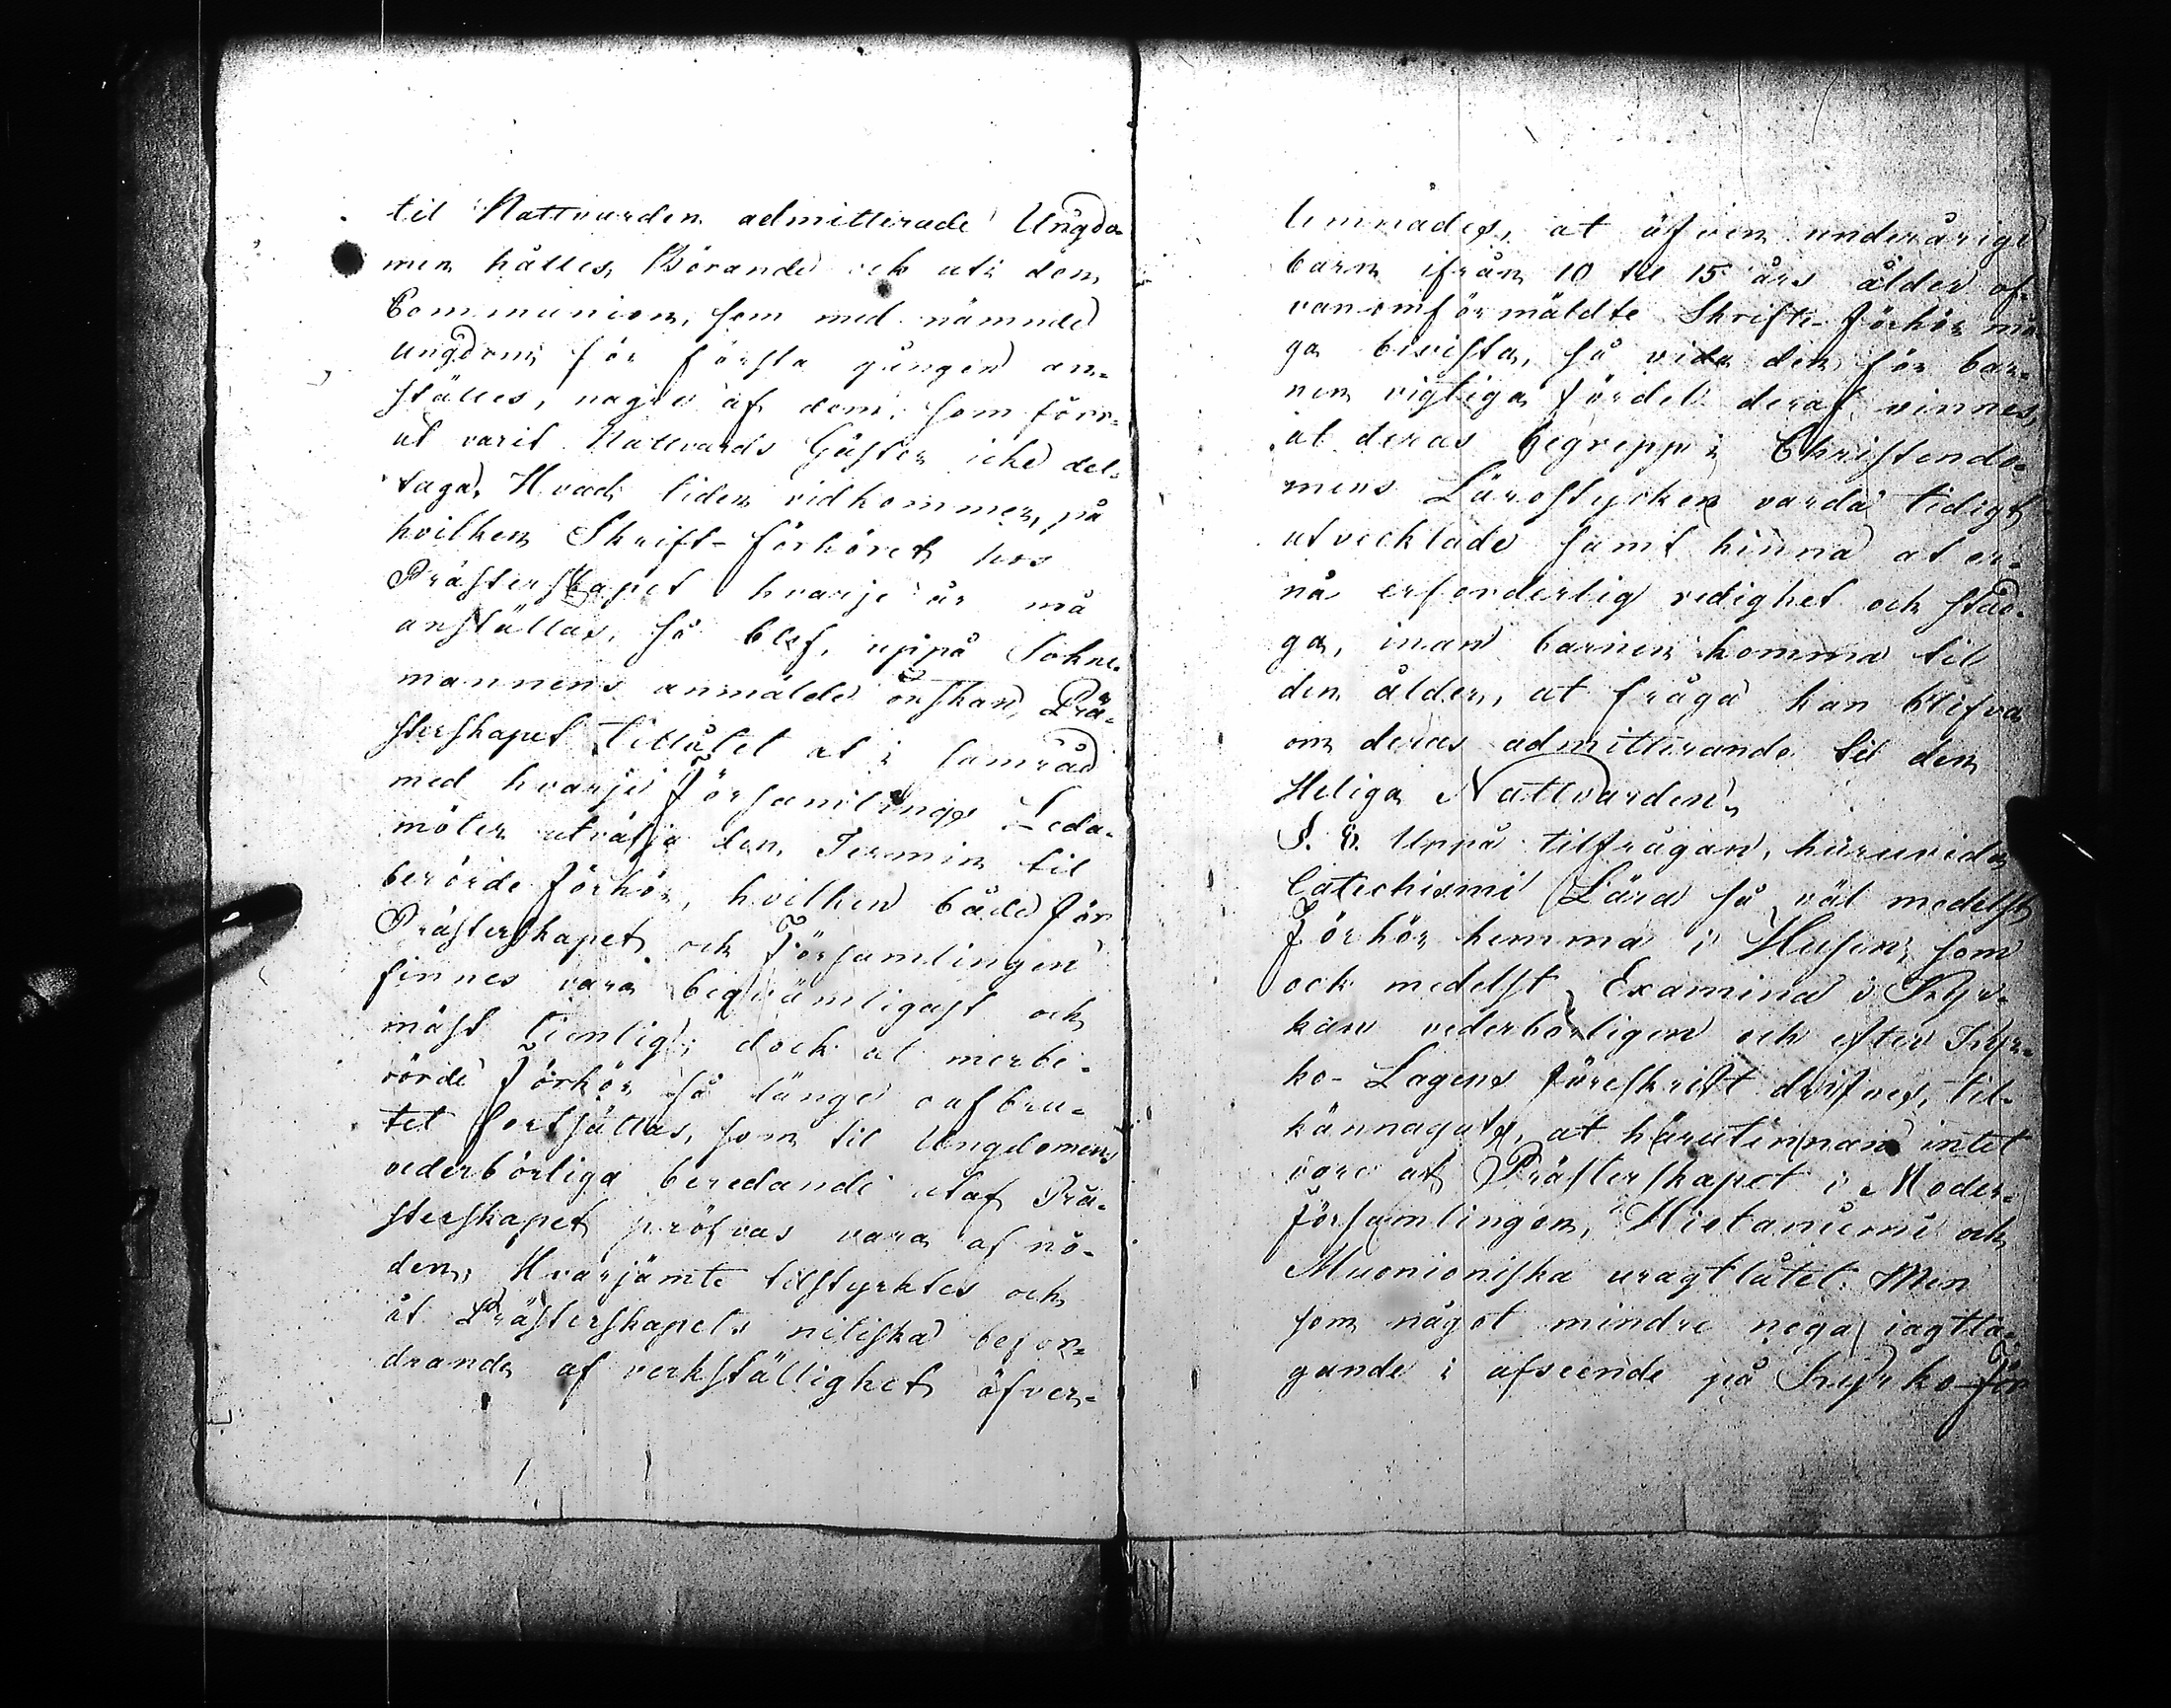 til Nattvarden admitterade Ungdo-
men hålles, Börande och uti den
Communion, som med nämnde
ungdom för första gången an-
ställes, någre af dem, som förr-
ut varit Nattvards Gäster icke del-
taga. Hvad tiden vidkommer, på
hvilken Skrift-förhöret hos
Prästerskapet hvarje år må
anställas, så blef, uppå Sokne-
mannens anmälde önskan, Prä-
sterskapet tillåtet at i samråd
med hvarje Församlings Leda-
möter utvälja den Termin til
berörde Förhör, hvilken både för
Prästerskapet och Församlingen
finnes vara beqvämligast och
mäst tienlig; dock at merbe-
rörde Förhör så länge oafbru-
tet fortsättas, som til Ungdomens
vederbörliga beredande utaf Prä-
sterskapet pröfvas vara af nö-
den; Hvarjämte tilstyrktes och
åt Prästerskapets nitiska befor-
drande af verkställighet öfver-
lemnades, at äfven underårige
barn ifrån 10 til 15 års ålder of-
vanomförmäldte Skrifte-Förhör må-
ga bivista, så vida den för bar-
nen vigtiga fördel deraf vinnes,
at deras begrepp i Christendo-
mens Lärostycken varda tidigt
utvecklade samt hinna at er-
nå erforderlig redighet och stad-
ga, innan barnen komma til
den ålder, at fråga kan blifva
om deras admitterande til den
Heliga Nattvarden.
§. 8. Uppå tilfrågan, huruvida
Catechismi Lära så väl medelst
Förhör hemma i Husen, som
ock medelst Examina i Kyr-
kan vederbörligen och efter Kyr-
ko-Lagens föreskrift drifves, til-
kännagafs, at härutinnan intet
vore af Prästerskapet i Moder-
församlingen, Hietaniemi och
Muonioniska uragtlåtet. Men
som något mindre noga iagtta-
gande i afseende på Kyrko-för